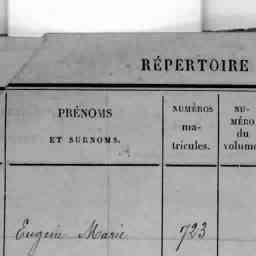 RÉPERTOIRE
PRÉNOMS
ET SURNOMS.
NUMÉROS
ma-
tricules.
NU-
MÉRO
du
volume
Eugène Marie
723